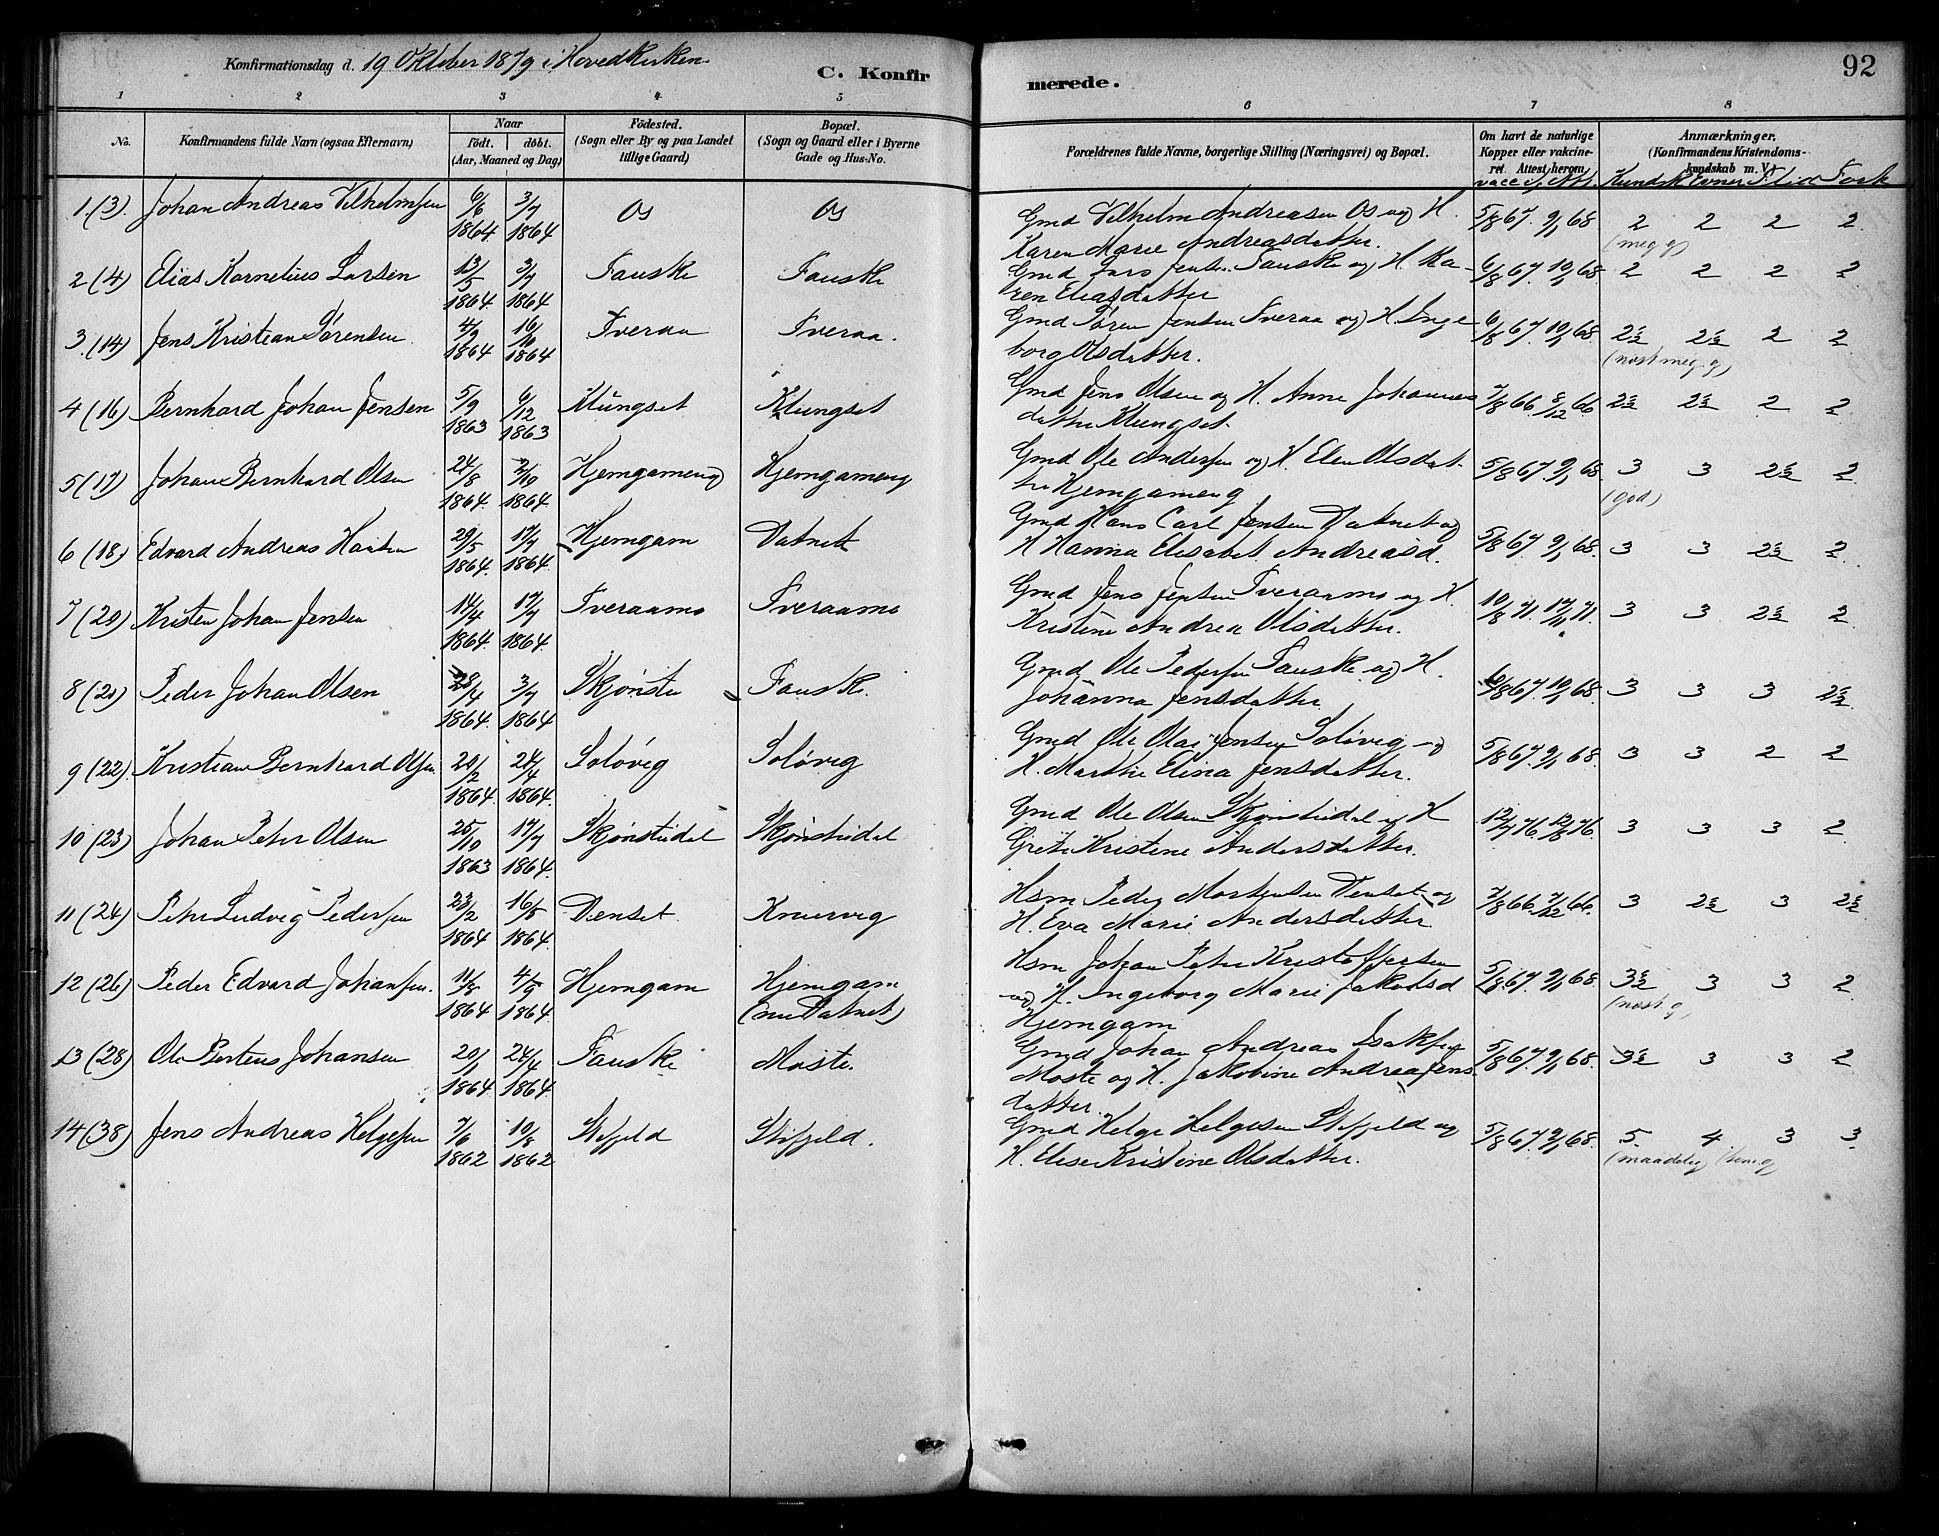 Konfirmationsdag d. 19 Oktober 1879 i Hovedkirken
C. Konfir
merede.
92
1 2 3 4 5 6 7 8
No.
Konfirmandens fulde Navn (ogsaa Efternavn)
Naar
födt. döbt.
(Aar, Maaned og Dag)
Födested.
(Sogn eller By og paa Landet
tillige Gaard)
Bopæl.
(Sogn og Gaard eller i Byerne
Gade og Hus-No.
Forældrenes fulde Navne, borgerlige Stilling (Næringsvei) og Bopæl.
Om havt de naturlige
Kopper eller vakcine-
ret. Attest herom.
vacc. Att.
Anmærkninger.
(Konfirmandens Kristendoms-
kundskab m. V.)
Kundsk Evner Flid Forh
1 (3) Johan Andreas Vilhelmsen 6/6 1864 3/7 1864 Os Os
Gmd Vilhelm Andreasen Os og H.
Karen Marie Andreasdatter. 5/8 67. 9/1 68. 2 (meg g) 2 2 2
2 (4) Elias Kornelius Larsen 13/5 1864 3/7 1864 Fauske Fauske
Gmd Lars Jensen Fauske og H. Ka-
ren Eliasdatter 6/8 67. 10/1 68. 2 2 2 2
3 (14) Jens Kristian Sörensen 4/9 1864 16/10 1864 Tveraa Tveraa.
Gmd Sören Jensen Tveraa og H. Inge
borg Olsdatter. 6/8 67. 10/1 68. (næst meg. g) 2 2
4 (16) Bernhard Johan Jensen 5/9 1863 6/12 1863 Klungset Klungset
Gmd Jens Olsen og H. Anne Johannes
datter Klungset. 7/8 66. 2 2
5 (17) Johan Bernhard Olsen 24/8 1864. 2/10 1864. Hjemgameng Hjemgameng
Gmd Ole Andersen og H. Elen Olsdat-
ter Hjemgameng 5/8 67. 9/1 68. 3 (god) 3 2
6 (18) Edvard Andreas Hansen 29/5 1864. 17/7 1864. Hjemgam Vatnet
Gmd Hans Carl Jensen Vatnet og
H Hanna Elisabet Andreasd. 5/8 67. 9/1 68. 3 3 2
7 (20) Kristen Johan Jensen 14/4 1864. 17/7 1864. Tveraamo Tveraamo
Gmd Jens Jensen Tveraamo og H.
Kristine Andrea Olsdatter. 10/8 71. 17/11 71. 3 3 2
8 (21) Peder Johan Olsen 1864. 3/7 1864. Skjönstu Fauske.
Gmd Ole Pedersen Fauske og H.
Johanna Jensdatter 6/8 67. 10/1 68. 3 3 3
9 (22) Kristian Bernhard Olsen 20/2 1864. 24/4 1864. Solövig Solövig
Gmd Ole Olai Jensen Solövig og
H. Marthe Elina Jensdatter. 5/8 67. 9/1 68. 3 3 2 2
10 (23) Johan Peter Olsen 25/10 1863 17/7 1864. Skjönstudal Skjönstudal
Gmd Ole Olsen Skjönstudal og H
Grete Kristene Andersdatter. 12/7 76. 12/8 76. 3 3 3 2
11 (24) Peter Ludvig Pedersen 23/2 1864 16/5 1864. Venset Knaervig
Hsm Peder Mortensen Venset og
H. Eva Marie Andersdatter 7/8 66. 7/12 66. 3 3
12 (26) Peder Edvard Johansen. 11/8 1864 4/9 1864. Hjemgam Hjemgam
(nu Vatnet)
Hsm Johan Peter Kristoffersen
og H. Ingeborg Marie Jakobsd
Hjemgam 5/8 67. 9/1 68. (næst g) 3 3 2
13 (28) Ole Berteus Johansen 20/1 1864 24/4 1864 Fauske Moste.
Gmd Johan Andreas Isaksen
Moste og H. Jakobine Andrea Jens
datter. 5/8 67. 9/1 68. 3 3 2
14 (38) Jens Andreas Helgesen 7/6 1862 10/8 1862 Stifjeld Stifjeld.
Gmd Helge Helgesen Stifjeld og
H. Elise Kristine Olsdatter. 5/8 67. 9/1 68. 5 (maadelig) 4 (tem.g) 3 3